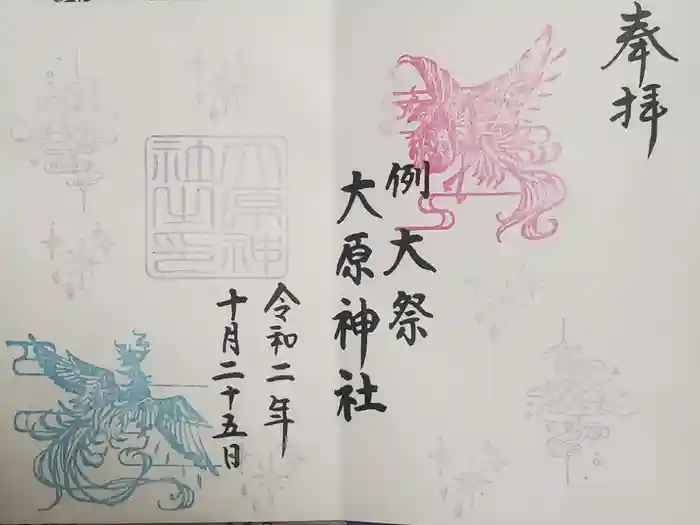 奉拝
例大祭
大原神社
大原神
社之印
令和二年
十月二十五日